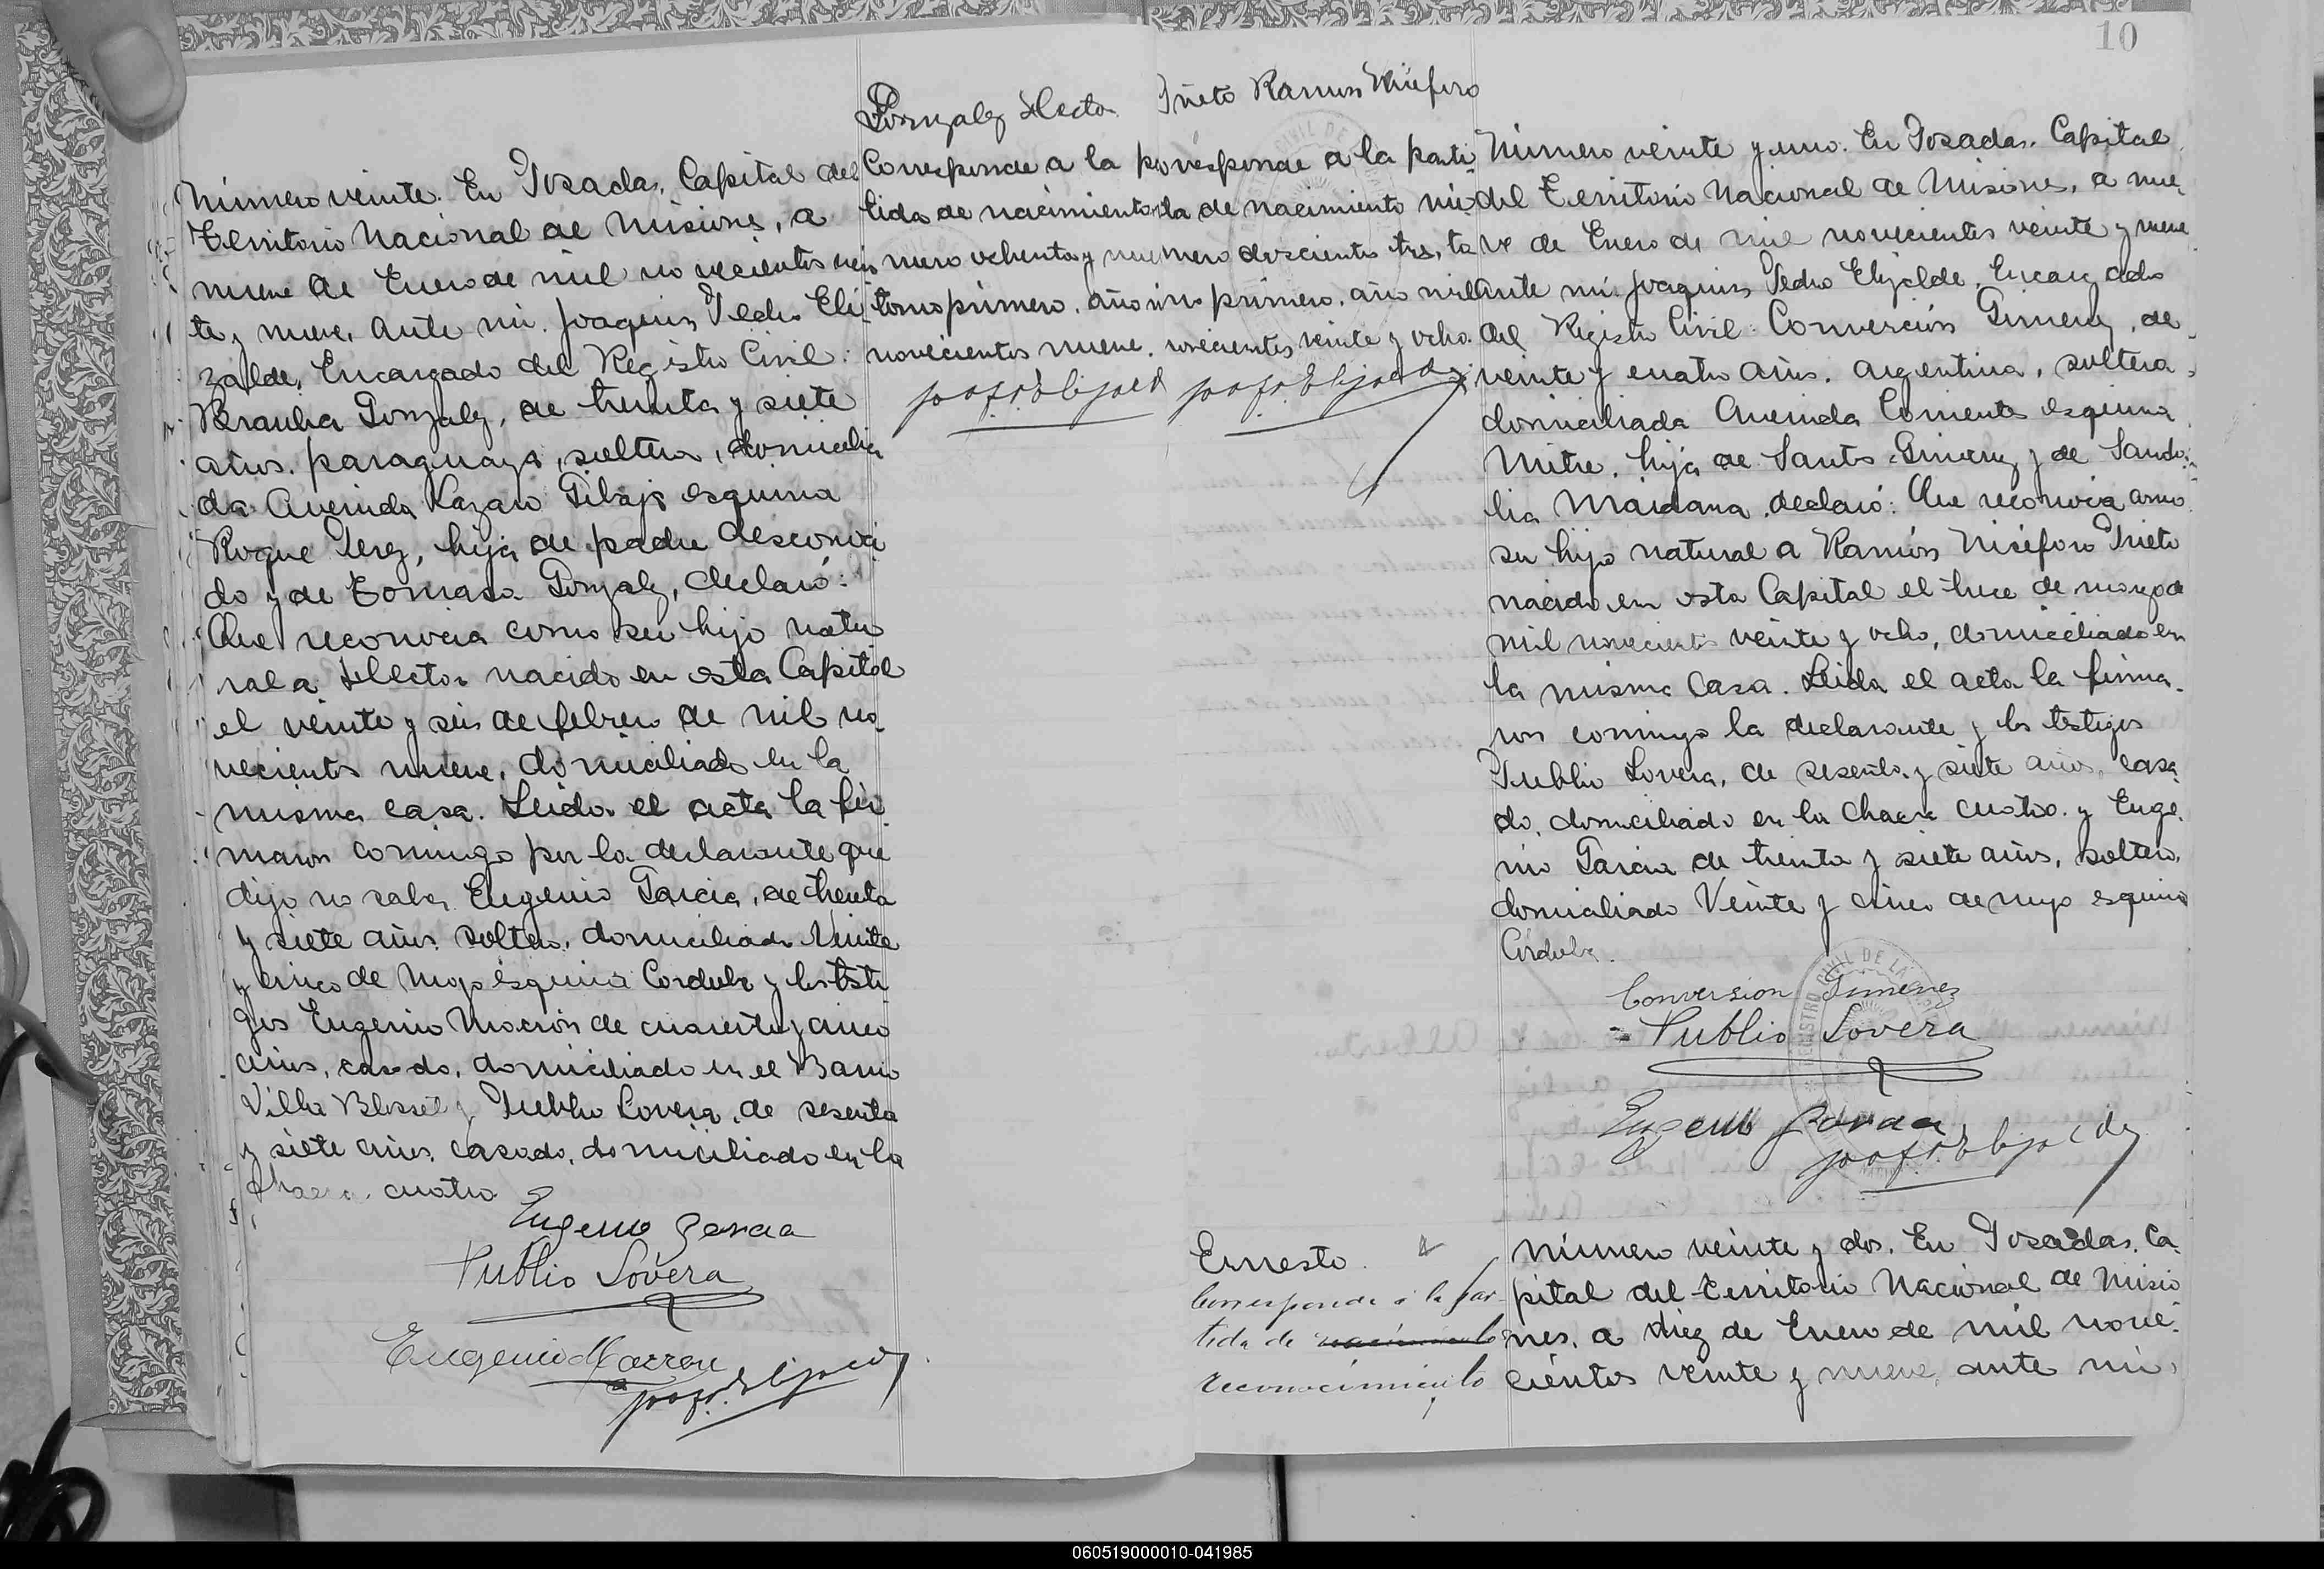 10
Número veinte. En Posadas, Capital del
Territorio Nacional de Misiones, a
nueve de Enero de mil novecientos vein
te y nueve, ante mi. Joaquin Pedro Eli
zalde, Encargado del Registro Civil:
Braulia Gonzalez, de treinta y siete
años, paraguaya, soltera, domicilia
da Avenida Lazaro Gibajo esquina
Roque Perez, hija de padre desconoci
do y de Tomasa Gonzalez, declaró:
Que reconocia como su hijo natu
ral a Hector nacido en esta Capital
el veinte y seis de febrero de mil no
vecientos nueve, domiciliado en la
misma casa. Leida el acta la fir
maron conmigo por la declarante que
dijo no saber Eugenio Garcia, de treinta
y siete años, soltero, domiciliado Veinte
y cinco de Mayo esquina Cordoba y los testi
gos Eugenio de cuarenta y cinco
años, casado, domiciliado en el Barrio
Villa Blosset y Publio Lovera, de sesenta
y siete años, casado, domiciliado en la
chacra cuatro
Eugenio Garcia
Publio Lovera
Eugenio
Gonzalez Hector
Corresponde a la par
tida de nacimiento nú
mero ochenta y nueve
tomo primero, año mil
novecientos nueve.
Prieto Ramon Niseforo
Corresponde a la parti
da de nacimiento nú
mero doscientos tres, to
mo primero, año mil
novecientos veinte y ocho.
Número veinte y uno. En Posadas, Capital
del Territorio Nacional de Misiones, a nue
ve de Enero de mil novecientos veinte y nueve
ante mi. Joaquin Pedro Elizalde, Encargado
del Registro Civil: Conversión Gimenez, de
veinte y cuatro años, argentina, soltera,
domiciliada Avenida Corrientes esquina
Mitre, hija de Santos Gimenez y de Sando
lia Maidana, declaró: Que reconocia como
su hijo natural a Ramón Niséforo Prieto
nacido en esta Capital el trece de marzo de
mil novecientos veinte y ocho, domiciliado en
la misma casa. Leida el acta la firma
ron conmigo la declarante y los testigos
Publio Lovera, de sesenta y siete años, casa
do, domiciliado en la chacra cuatro y Euge
nio Garcia de treinta y siete años, soltero,
domiciliado Veinte y cinco de mayo esquina
Córdoba.
Conversion Jimenes
Publio Lovera
Eugenio Garcia
Ernesto
Corresponde a la par
tida de nacimiento
reconocimiento
Número veinte y dos. En Posadas, Ca
pital del Territorio Nacional de Misio
nes, a diez de Enero de mil nove
cientos veinte y nueve, ante mi,
060519000010-041985